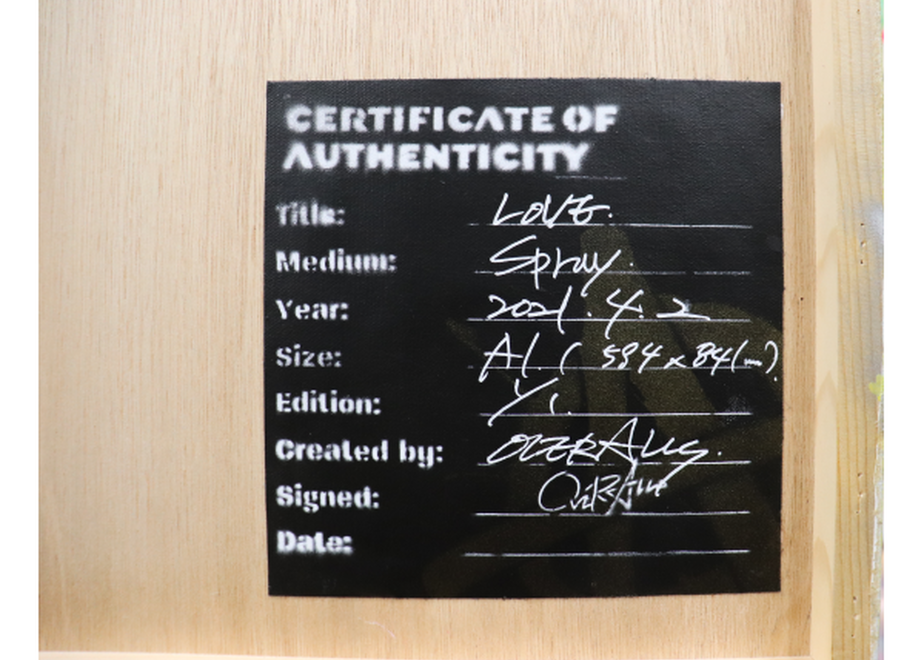 CERTIFICATE OF
AUTHENTICITY
Title: LOVE.
Medium: Spray.
Year: 2021.4.2
Size: A1. ( 594 x 841mm).
Edition: 1/1.
Created by: OVERALLs.
Signed:
Date: